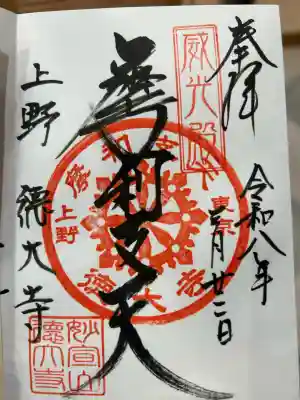 奉拝
威光殿
令和八年
月廿二日
摩利支天
上野 徳大寺
東京
上野
摩利支
徳大寺
妙宣山
徳大寺